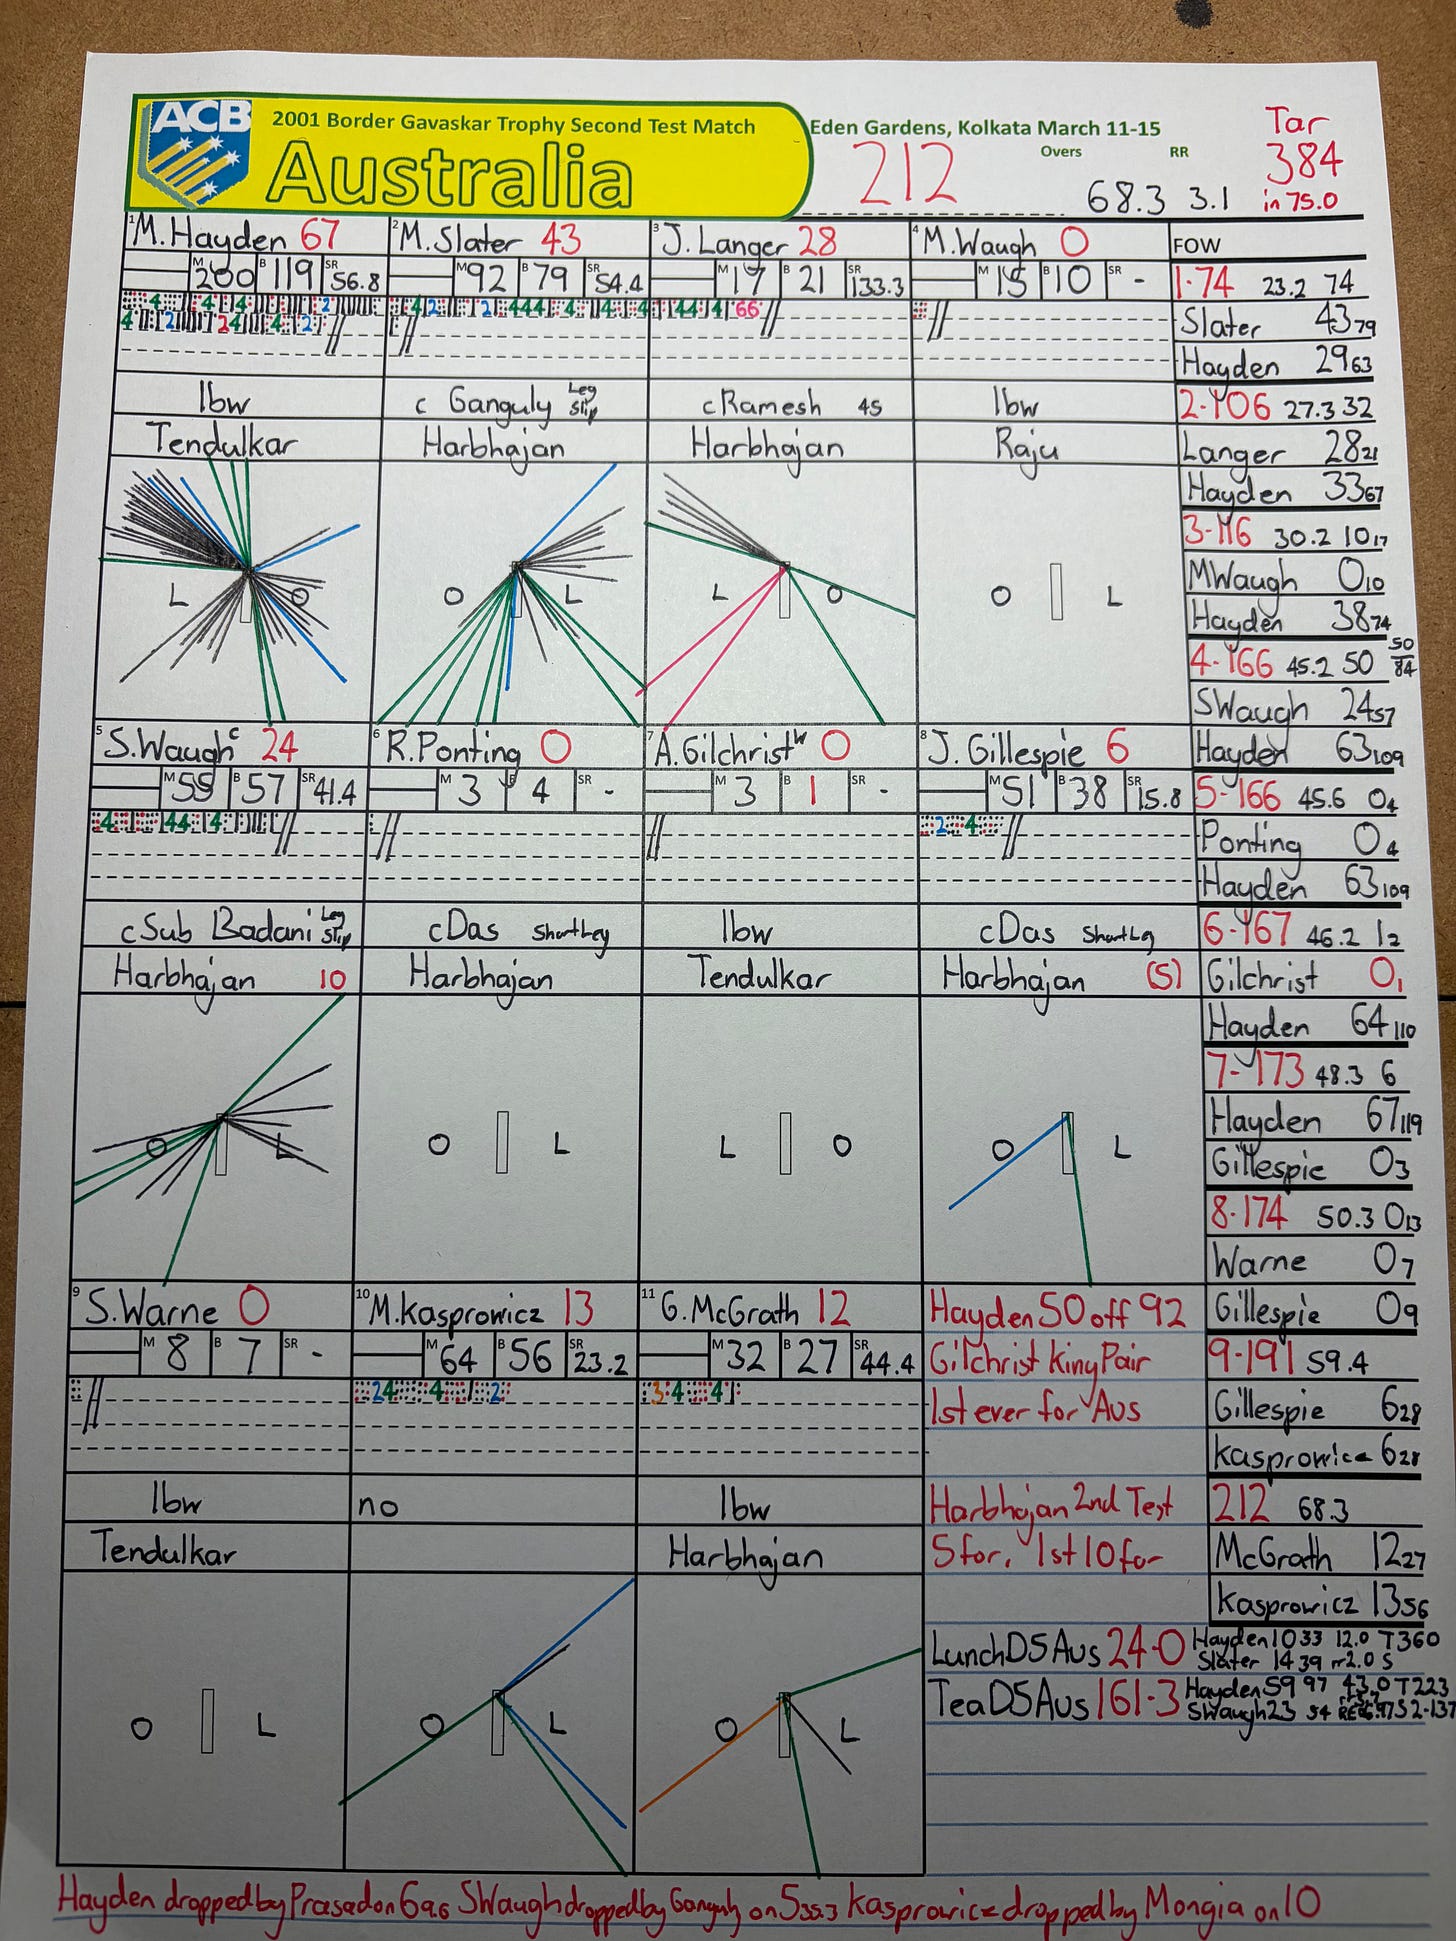 ACB
2001 Border Gavaskar Trophy Second Test Match
Australia
Eden Gardens, Kolkata March 11-15
212
Overs
RR
68.3 3.1
Tar
384
in 75.0
1 M.Hayden 67
M 200 B 119 SR 56.8
lbw
Tendulkar
L O
2 M.Slater 43
M 92 B 79 SR 54.4
c Ganguly Leg Slip
Harbhajan
O L
3 J.Langer 28
M 17 B 21 SR 133.3
c Ramesh 45
Harbhajan
L O
4 M.Waugh 0
M 15 B 10 SR -
lbw
Raju
O L
5 S.Waugh c 24
M 59 B 57 SR 41.4
c Sub Badani Leg Slip
Harbhajan 10
O L
6 R.Ponting 0
M 3 B 4 SR -
cDas Short Leg
Harbhajan
O L
7 A.Gilchrist w 0
M 3 B 1 SR -
lbw
Tendulkar
L O
8 J.Gillespie 6
M 51 B 38 SR 15.8
cDas Short Leg
Harbhajan (5)
O L
9 S.Warne 0
M 8 B 7 SR -
lbw
Tendulkar
O L
10 M.Kasprowicz 13
M 64 B 56 SR 23.2
no
O L
11 G.McGrath 12
M 32 B 27 SR 44.4
lbw
Harbhajan
O L
FOW
1-74 23.2 74
Slater 43 79
Hayden 29 63
2-106 27.3 32
Langer 28 21
Hayden 33 67
3-116 30.2 10 17
MWaugh 0 10
Hayden 38 74
4-166 45.2 50 50 84
SWaugh 24 57
Hayden 63 109
5-166 45.6 0 4
Ponting 0 4
Hayden 63 109
6-167 46.2 1 2
Gilchrist 0 1
Hayden 64 110
7-173 48.3 6
Hayden 67 119
Gillespie 0 3
8-174 50.3 0 13
Warne 0 7
Gillespie 0 9
9-191 59.4
Gillespie 6 28
Kasprowicz 6 28
212 68.3
McGrath 12 27
Kasprowicz 13 56
Hayden 50 off 92
Gilchrist King Pair
1st ever for Aus
Harbhajan 2nd Test
5for, 1st 10for
Lunch D5 Aus 24-0 Hayden 10 33 12.0 T360
Slater 14 39
Tea D5 Aus 161-3 Hayden 59 97 43.0 T223
SWaugh 23 54
Hayden dropped by Prasad on 6 9.6 SWaugh dropped by Ganguly on 5 35.3 Kasprowicz dropped by Mongia on 10